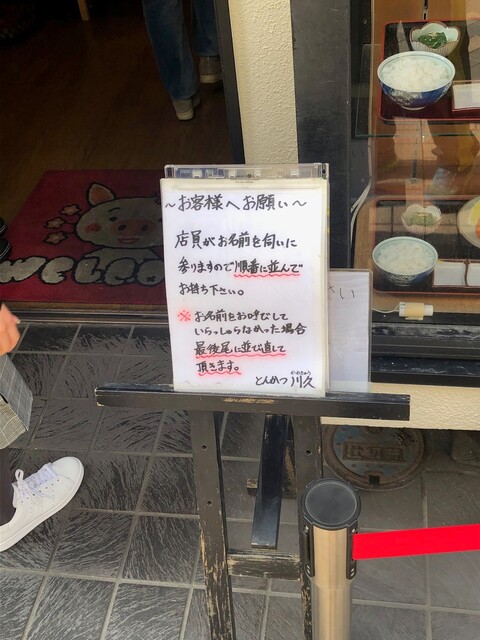 ～お客様へお願い～
店員がお名前を伺いに
参りますので順番に並んで
お待ち下さい。
※お名前をお呼びして
いらっしゃらなかった場合
最後尾に並び直して
頂きます。
かわきゅう
とんかつ 川久
さい
WELCO